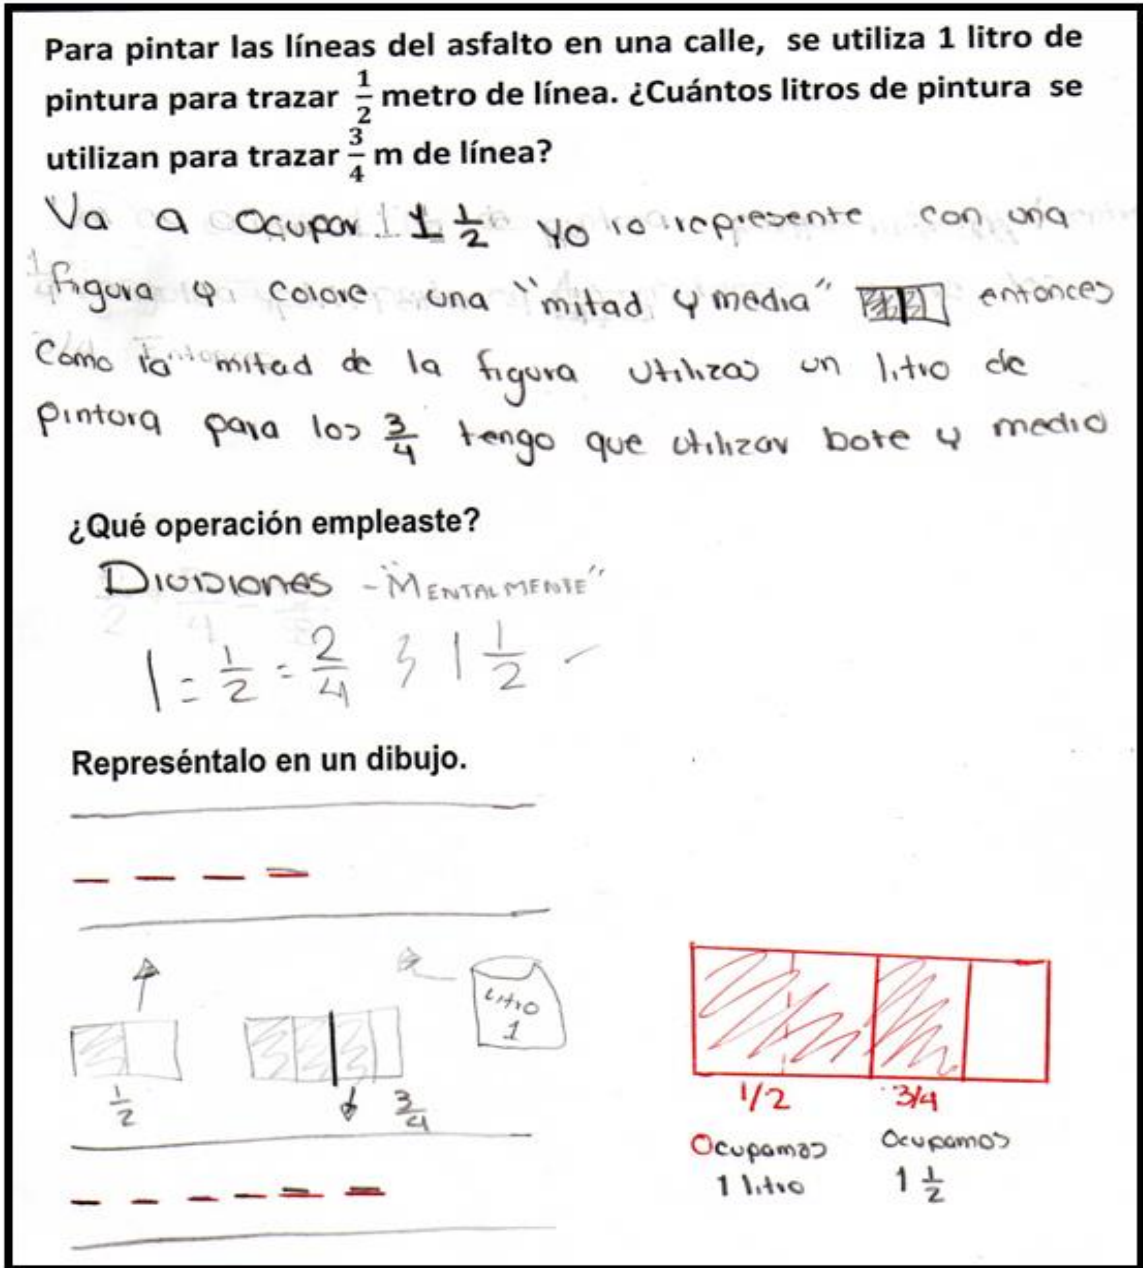 Para pintar las líneas del asfalto en una calle, se utiliza 1 litro de
pintura para trazar 1/2 metro de línea. ¿Cuántos litros de pintura se
utilizan para trazar 3/4 m de línea?
Va a Ocupar 1 1/2 yo lo represente con una
figura y colore una "mitad y media" entonces
Como la mitad de la figura utilizas un litro de
pintura para los 3/4 tengo que utilizar bote y medio
¿Qué operación empleaste?
Divisiones - "MENTALMENTE"
1 = 1/2 = 2/4 1 1/2
Represéntalo en un dibujo.
Litro
1
1/2 3/4
1/2 3/4
Ocupamos Ocupamos
1 litro 1 1/2